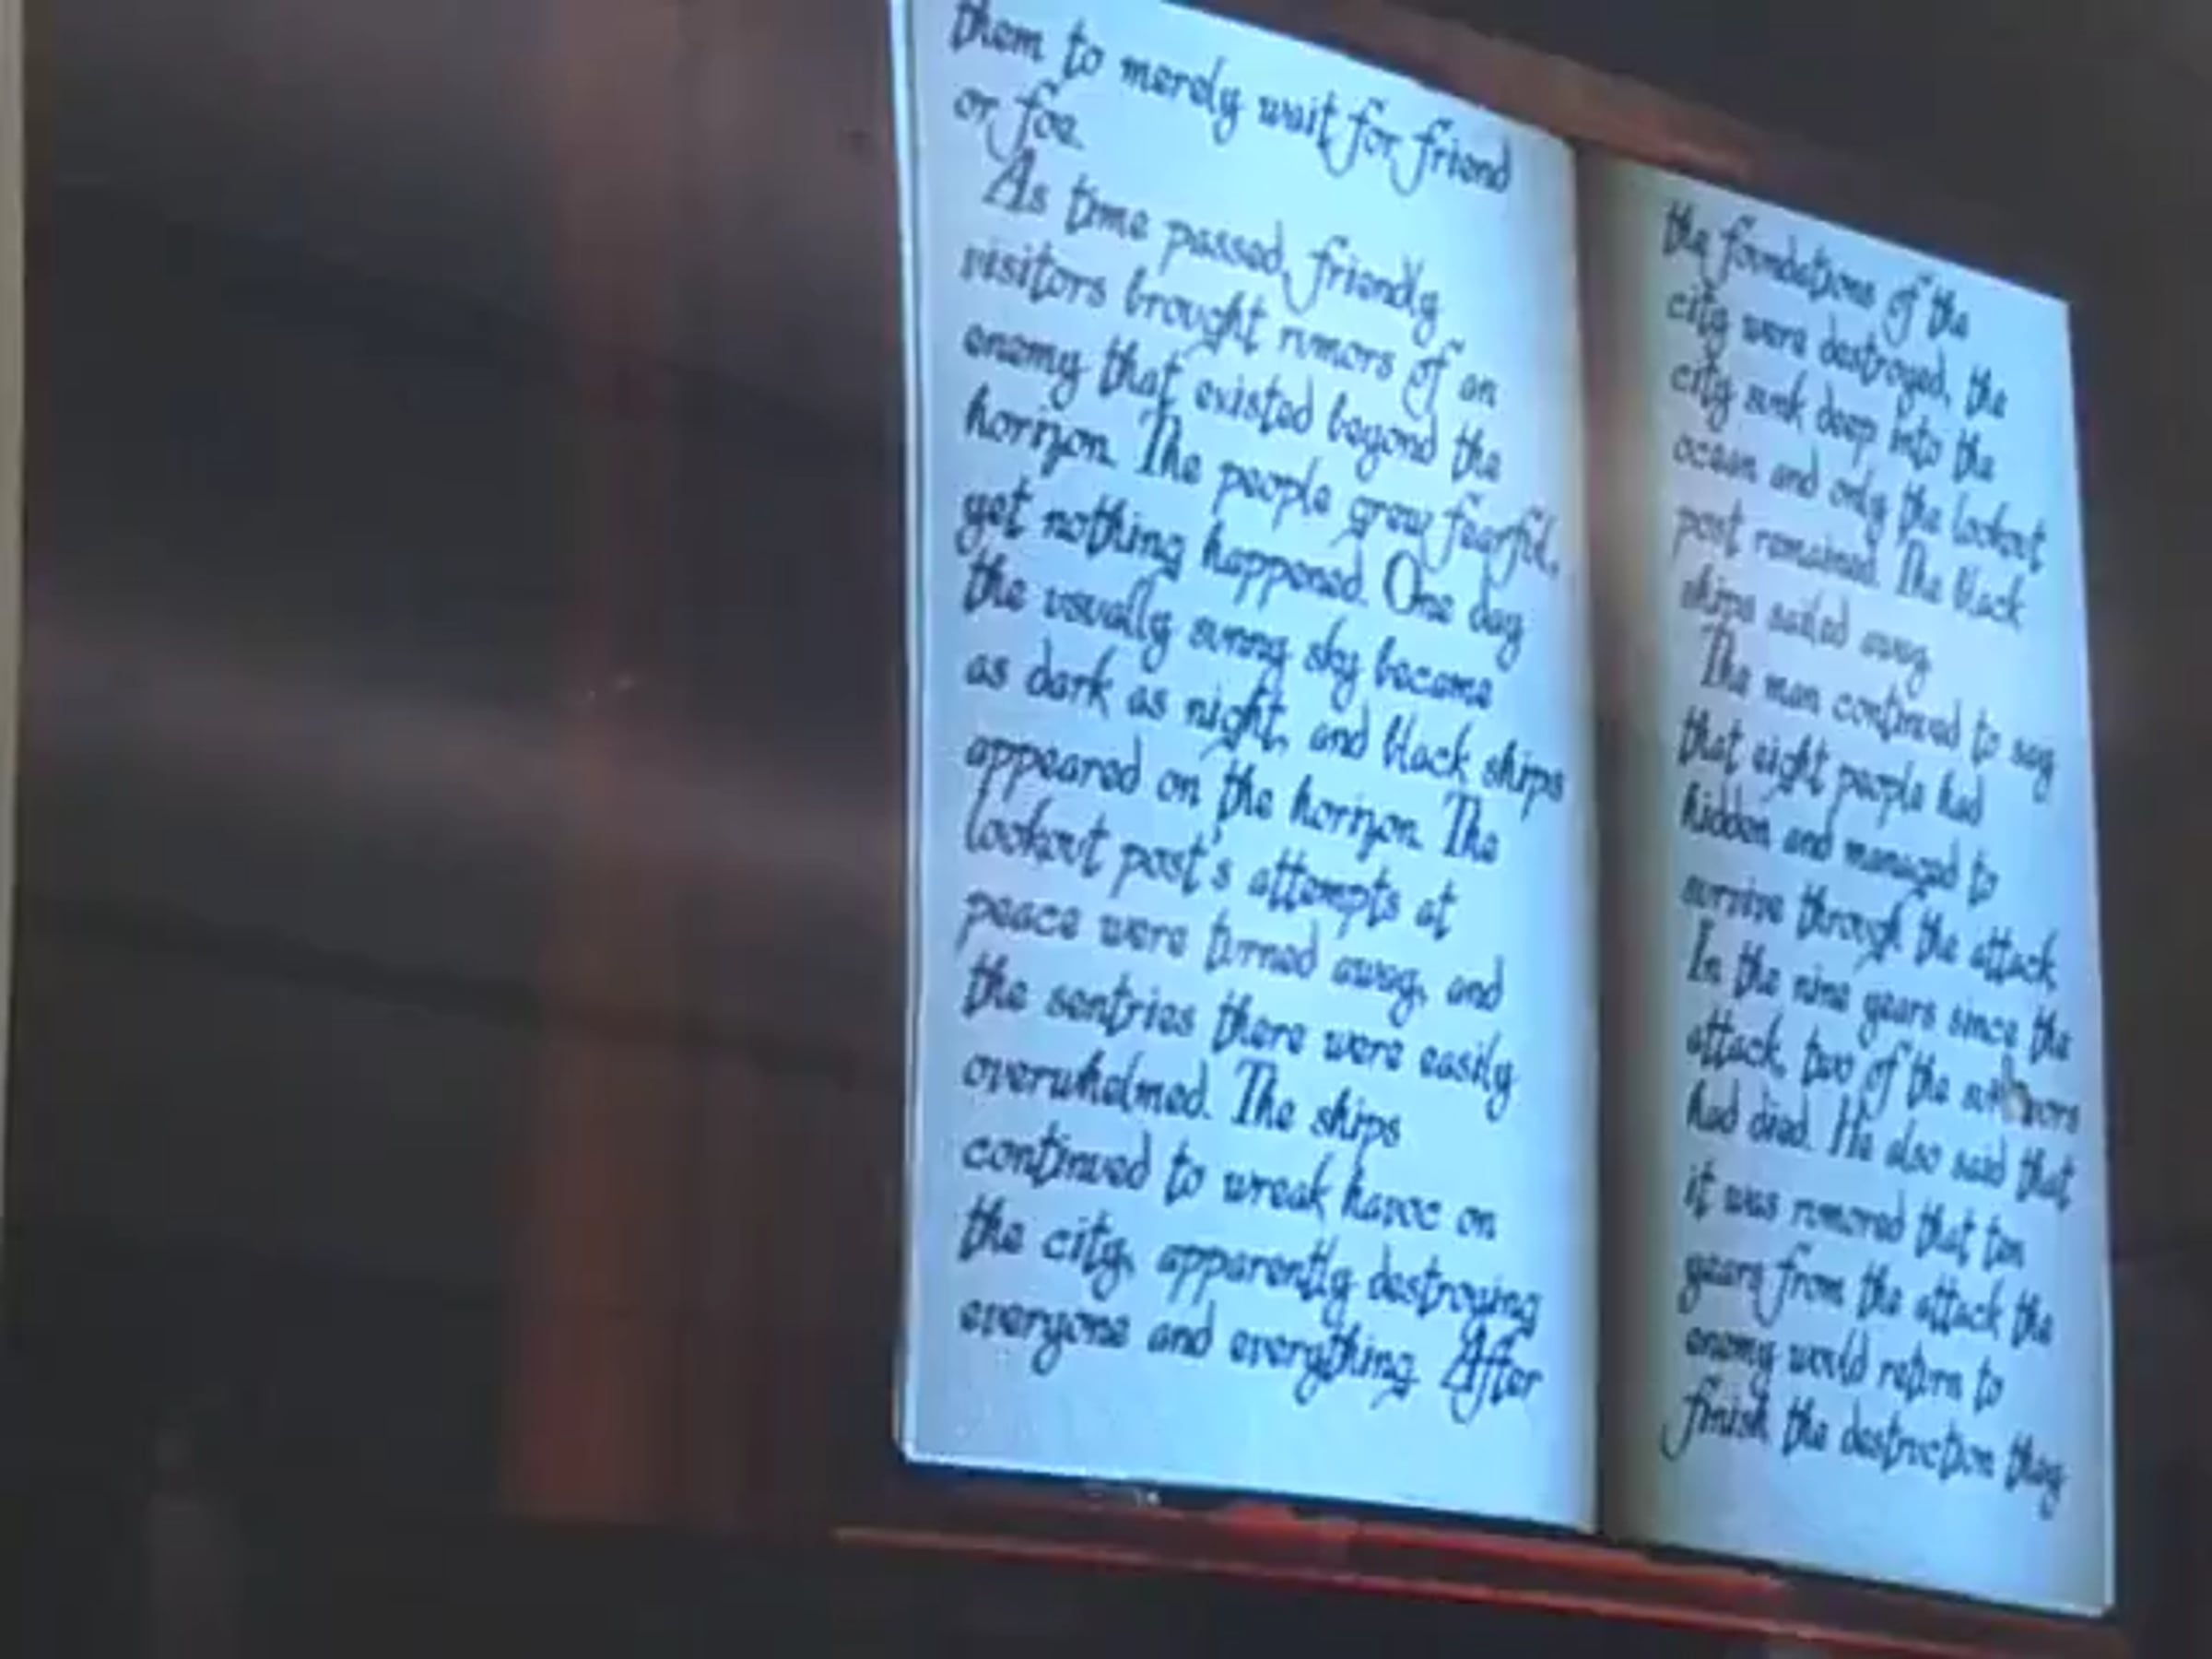 them to merely wait for friend
or foe.
As time passed, friendly
visitors brought rumors of an
enemy that existed beyond the
horizon. The people grew fearful,
yet nothing happened. One day
the usually sunny sky became
as dark as night, and black ships
appeared on the horizon. The
lookout post's attempts at
peace were turned away, and
the sentries there were easily
overwhelmed. The ships
continued to wreak havoc on
the city, apparently destroying
everyone and everything. After
the foundations of the
city were destroyed, the
city sunk deep into the
ocean and only the lookout
post remained. The black
ships sailed away.
The man continued to say
that eight people had
hidden and managed to
survive through the attack.
In the nine years since the
attack, two of the survivors
had died. He also said that
it was rumored that ten
years from the attack the
enemy would return to
finish the destruction they